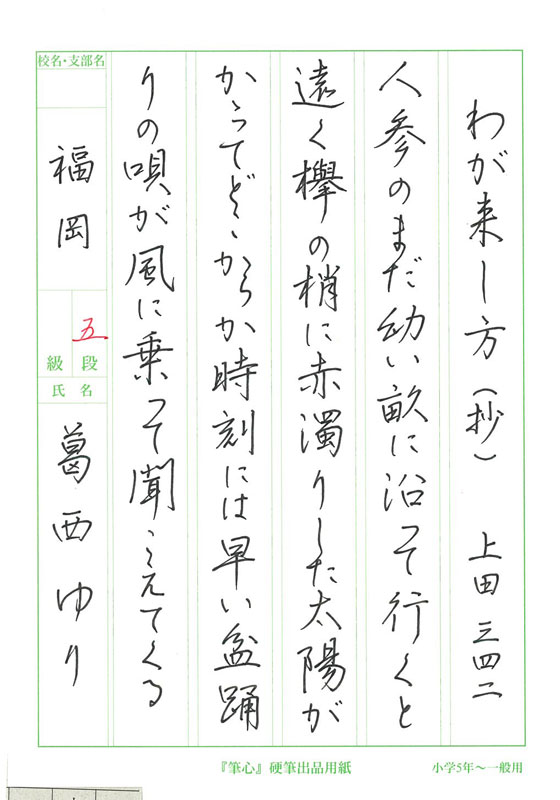 わが来し方(抄) 上田三四二
人参のまだ幼い畝に沿って行くと
遠く欅の梢に赤濁りした太陽が
かゝってどこからか時刻には早い盆踊
りの唄が風に乗って聞こえてくる
校名・支部名
福岡
五
段
級
氏名
葛西ゆり
『筆心』硬筆出品用紙
小学5年〜一般用